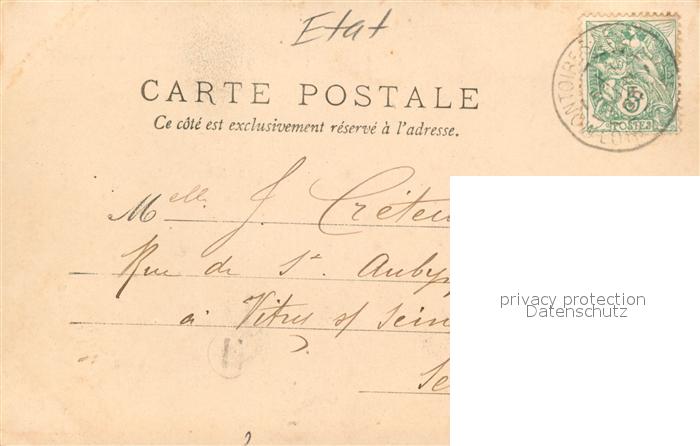 Etat
CARTE POSTALE
Ce côté est exclusivement réservé à l'adresse.
Melle J. Créteu
Rue de St Auby
à Vitry s/ Sein
Se
privacy protection
Datenschutz
5
POSTES